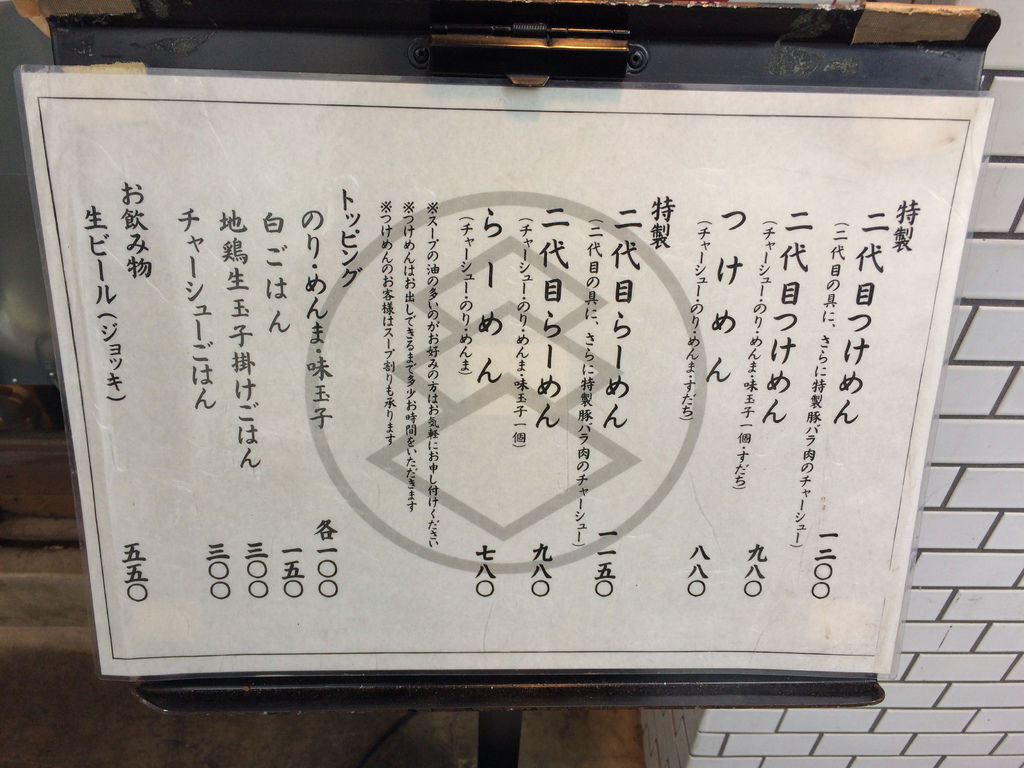 特製
二代目つけめん
(二代目の具に、さらに特製豚バラ肉のチャーシュー)
一二〇〇
二代目つけめん
(チャーシュー・のり・めんま・味玉子一個・すだち)
九八〇
つけめん
(チャーシュー・のり・めんま・すだち)
八八〇
特製
二代目らーめん
(二代目の具に、さらに特製豚バラ肉のチャーシュー)
一一五〇
二代目らーめん
(チャーシュー・のり・めんま・味玉子一個)
九八〇
らーめん
(チャーシュー・のり・めんま)
七八〇
※スープの油の多いのがお好みの方はお気軽にお申し付けください
※つけめんはお出しできるまで多少お時間をいただきます
※つけめんのお客様はスープ割りも承ります
トッピング
のり・めんま・味玉子 各一〇〇
白ごはん 一五〇
地鶏生玉子掛けごはん 三〇〇
チャーシューごはん 三〇〇
お飲み物
生ビール(ジョッキ) 五五〇